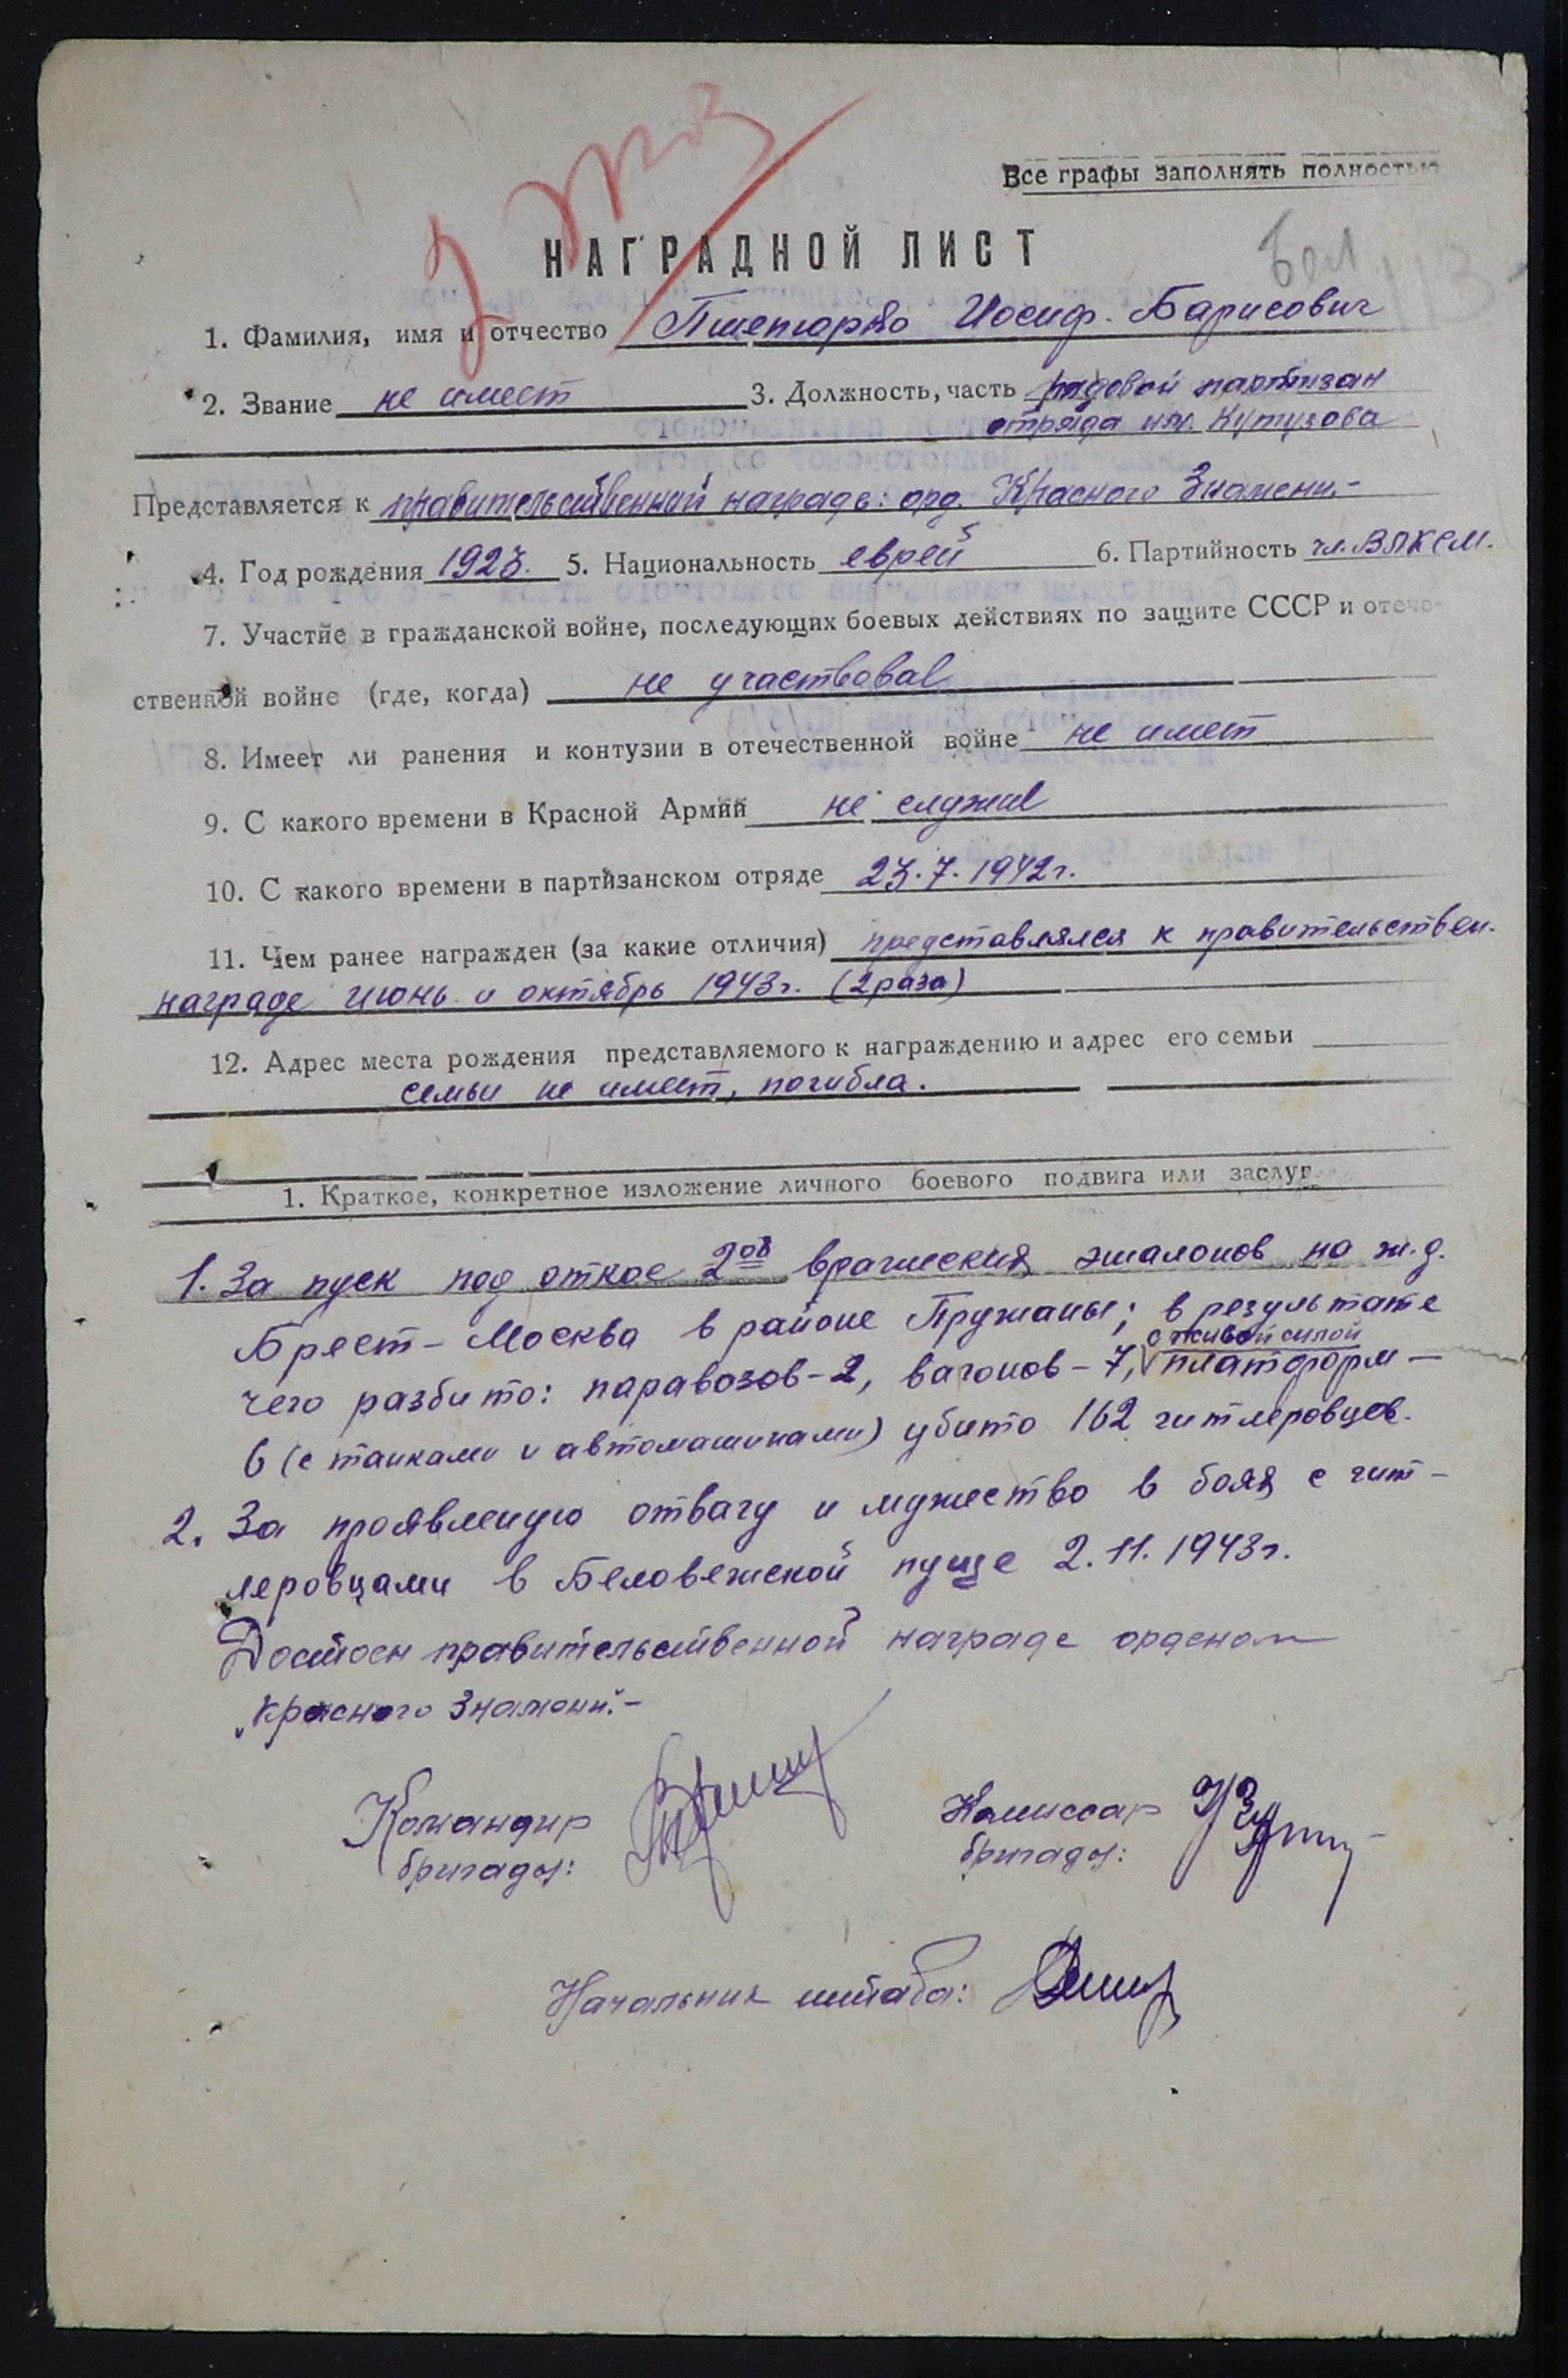 Все графы заполнять полностью
НАГРАДНОЙ ЛИСТ
Бел
1. Фамилия, имя и отчество Пшепюрко Иосиф Барисович
2. Звание не имеет 3. Должность, часть рядовой партизан
отряда им. Кутузова
Представляется к правительственной награде: орд. Красного Знамени.-
4. Год рождения 1923. 5. Национальность еврей 6. Партийность чл. ВЛКСМ.
7. Участие в гражданской войне, последующих боевых действиях по защите СССР и отече-
ственной войне (где, когда) не участвовал
8. Имеет ли ранения и контузии в отечественной войне не имеет
9. С какого времени в Красной Армии не служил
10. С какого времени в партизанском отряде 23.7.1942г.
11. Чем ранее награжден (за какие отличия) представлялся к правительствен.
награде июнь и октябрь 1943г. (2 раза)
12. Адрес места рождения представляемого к награждению и адрес его семьи
семьи не имеет, погибла.
1. Краткое, конкретное изложение личного боевого подвига или заслуг
1. За пуск под откос 2ов вражеских эшалонов на ж.д.
Брест - Москва в районе Пружаны; в результате
с живой силой
чего разбито: паравозов-2, вагонов-7, платформ-
6 (с танками и автомашинами) убито 162 гитлеровцев.
2. За проявленую отвагу и мужество в боях с гит-
леровцами в Беловежской пуще 2.11.1943г.
Достоен правительственной награде орденом
„Красного Знамени".-
Командир
бригады:
Комиссар
бригады:
Начальник штаба: